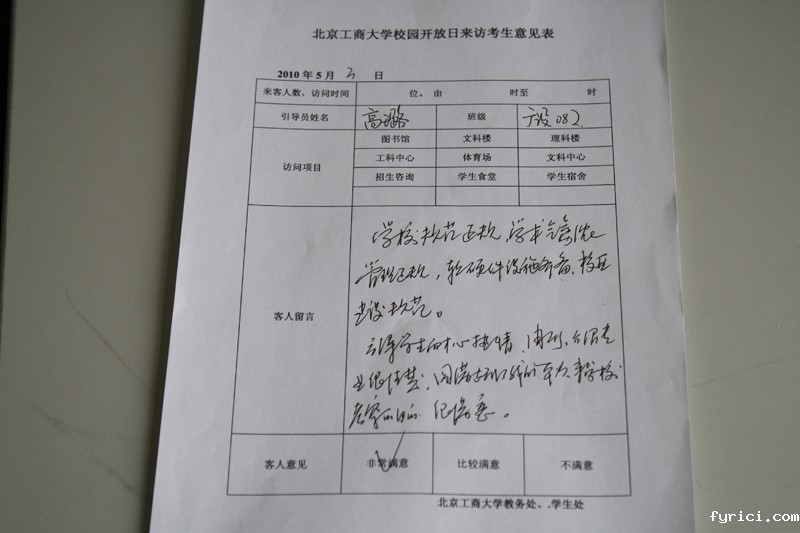 北京工商大学校园开放日来访考生意见表
2010 年 5 月 3 日
来客人数，访问时间 位。由 时至 时
引导员姓名 高璐 班级 082
访问项目
图书馆 文科楼 理科楼
工科中心 体育场 文科中心
招生咨询 学生食堂 学生宿舍
客人留言
学校规范正规，学术
管理正规，软硬件设施齐备、校区
建设规范。
学生 热情、周到，介绍专
业很清楚，圆满 学校
很满意。
客人意见 非常满意 比较满意 不满意
北京工商大学教务处、.学生处
fyrici.com